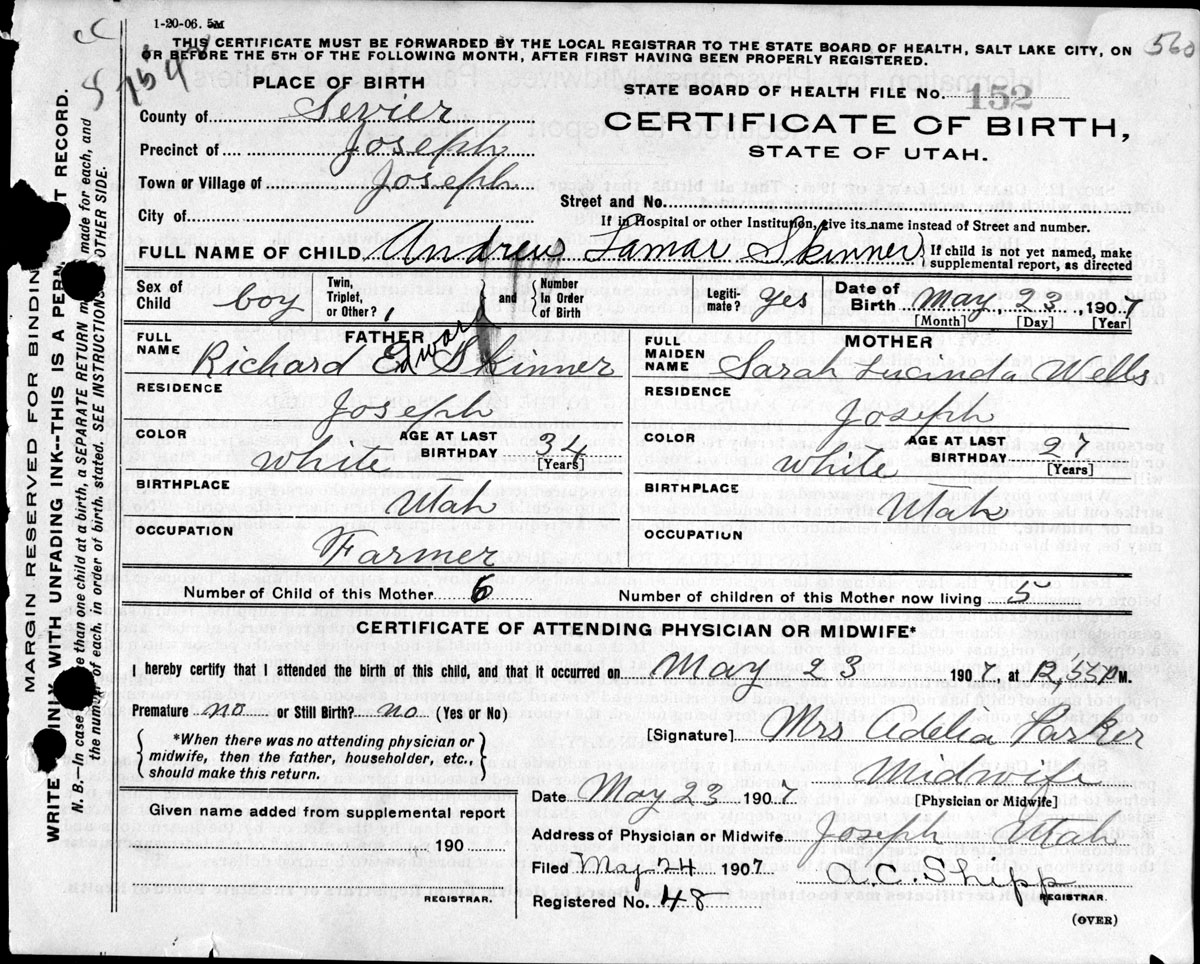 1-20-06. 5M
THIS CERTIFICATE MUST BE FORWARDED BY THE LOCAL REGISTRAR TO THE STATE BOARD OF HEALTH, SALT LAKE CITY, ON
OR BEFORE THE 5TH OF THE FOLLOWING MONTH, AFTER FIRST HAVING BEEN PROPERLY REGISTERED.
560
PLACE OF BIRTH
STATE BOARD OF HEALTH FILE No. 152
County of Sevier
CERTIFICATE OF BIRTH,
Precinct of Joseph
STATE OF UTAH.
Town or Village of Joseph
Street and No.
City of
If in Hospital or other Institution, give its name instead of Street and number.
FULL NAME OF CHILD Andrew Lamar Skinner
If child is not yet named, make
supplemental report, as directed
Sex of Child boy
Twin, Triplet, or Other? 1
and
Number In Order of Birth
Legiti-mate? yes
Date of Birth May, 23, 1907
[Month] [Day] [Year]
FATHER
FULL NAME Richard Edward Skinner
RESIDENCE Joseph
COLOR White
AGE AT LAST BIRTHDAY 34
[Years]
BIRTHPLACE Utah
OCCUPATION Farmer
MOTHER
FULL MAIDEN NAME Sarah Lucinda Wells
RESIDENCE Joseph
COLOR White
AGE AT LAST BIRTHDAY 27
[Years]
BIRTHPLACE Utah
OCCUPATION
Number of Child of this Mother 6 Number of children of this Mother now living 5
CERTIFICATE OF ATTENDING PHYSICIAN OR MIDWIFE*
I hereby certify that I attended the birth of this child, and that it occurred on May 23 1907, at 12,55 P M.
Premature no or Still Birth? no (Yes or No)
*When there was no attending physician or
midwife, then the father, householder, etc.,
should make this return.
[Signature] Mrs Adelia Parker
Midwife
Date May 23 1907 [Physician or Midwife]
Given name added from supplemental report
190
REGISTRAR.
Address of Physician or Midwife Joseph Utah
Filed May 24 1907 A.C. Shipp
Registered No. 48 REGISTRAR.
(OVER)
MARGIN RESERVED FOR BINDING
WRITE WITH UNFADING INK--THIS IS A RECORD.
N. B.--In case than one child at birth, a SEPARATE RETURN made for each, and
the number of each, in order of birth, stated. SEE INSTRUCTIONS OTHER SIDE.